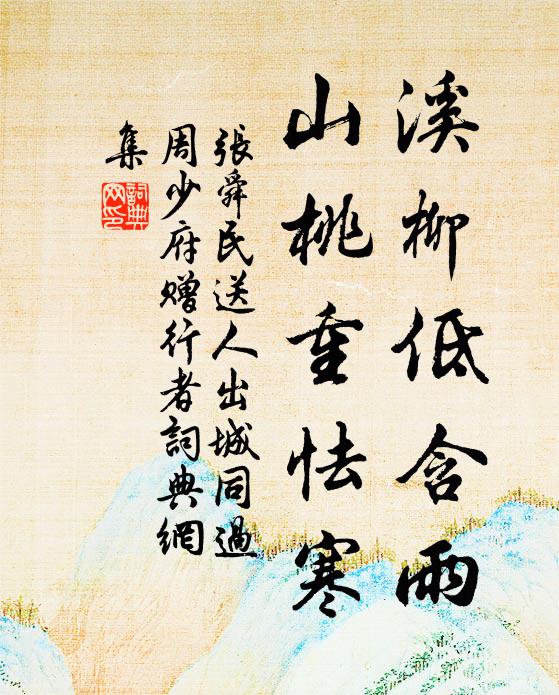 溪柳低含雨
山桃重怯寒
張舜民送人出城同過
周少府贈行者詞典網
集
詞典網印